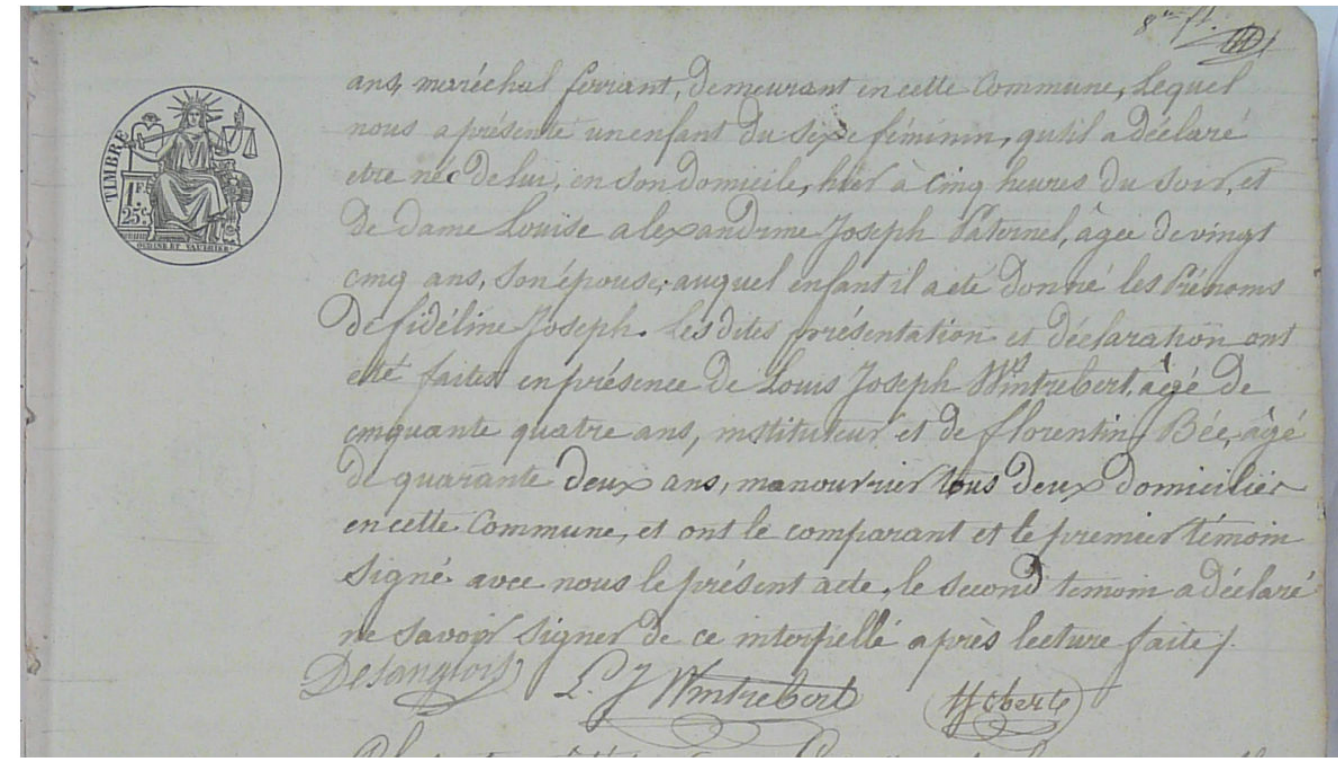 8me ft.
TIMBRE
1 F.
25c.
OUDINE ET VAUTHIER
ans, maréchal ferrant, demeurant en cette Commune, Lequel
nous a présenté un enfant du sexe féminin, qu'il a déclaré
etre née de lui, en son domicile, hier à cinq heures du soir, et
de dame Louise alexandrine Joseph Paternel, âgée de vingt
cinq ans, son épouse, auquel enfant il a été donné les Prénoms
de fidéline Joseph. Les dites présentation et déclaration ont
été faites en présence de Louis Joseph Wintrebert, âgé de
cinquante quatre ans, instituteur et de florentin Bée, âgé
de quarante deux ans, manouvrier tous deux domiciliés
en cette Commune, et ont le comparant et le premier témoin
signé avec nous le présent acte, le second temoin a déclaré
ne savoir signer de ce interpellé après lecture faite /.
Delanglois L. J Wintrebert